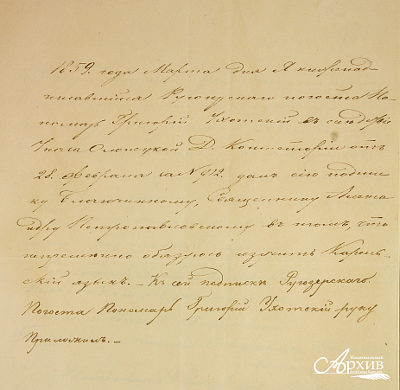 1859 года Марта дня Я нижепод-
писавшийся Ругозерского погоста По-
номарь Григорий Ухотский въ следствіе
Указа Олонецкой Д. Консисторіи отъ
28. Февраля за № 912. далъ сію подпис-
ку Благочинному, Священнику Алекса
ндру Петропавловскому въ томъ, что
непременно обязуюсь изучить Карель-
скій языкъ. – Къ сей подписки Ругозерскаго
Погоста Пономарь Григорій Ухотскій руку
Приложилъ. –
Национальный
Архив